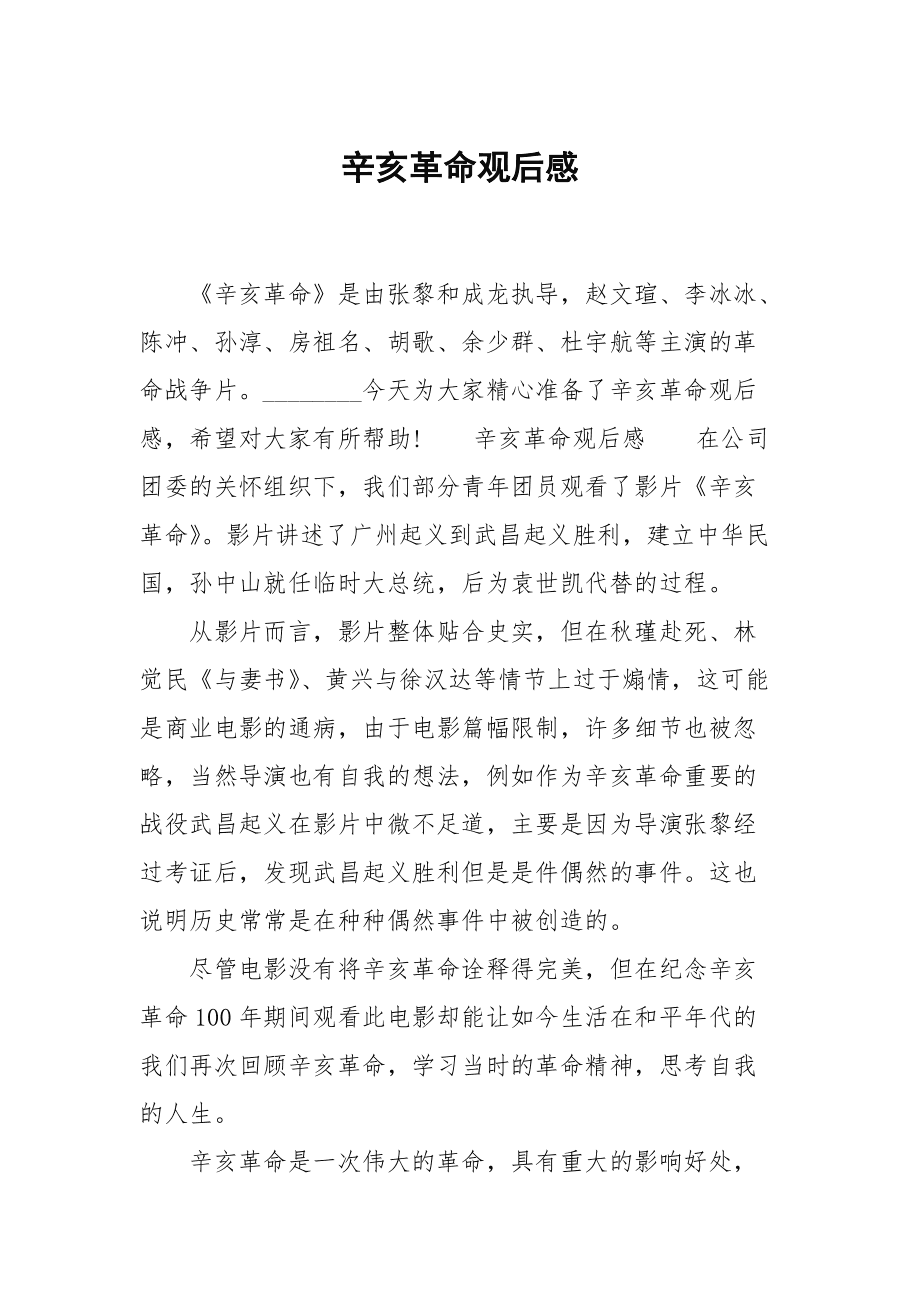 辛亥革命观后感
《辛亥革命》是由张黎和成龙执导，赵文瑄、李冰冰、
陈冲、孙淳、房祖名、胡歌、余少群、杜宇航等主演的革
命战争片。________今天为大家精心准备了辛亥革命观后
感，希望对大家有所帮助!　　辛亥革命观后感　　在公司
团委的关怀组织下，我们部分青年团员观看了影片《辛亥
革命》。影片讲述了广州起义到武昌起义胜利，建立中华民
国，孙中山就任临时大总统，后为袁世凯代替的过程。
从影片而言，影片整体贴合史实，但在秋瑾赴死、林
觉民《与妻书》、黄兴与徐汉达等情节上过于煽情，这可能
是商业电影的通病，由于电影篇幅限制，许多细节也被忽
略，当然导演也有自我的想法，例如作为辛亥革命重要的
战役武昌起义在影片中微不足道，主要是因为导演张黎经
过考证后，发现武昌起义胜利但是是件偶然的事件。这也
说明历史常常是在种种偶然事件中被创造的。
尽管电影没有将辛亥革命诠释得完美，但在纪念辛亥
革命100年期间观看此电影却能让如今生活在和平年代的
我们再次回顾辛亥革命，学习当时的革命精神，思考自我
的人生。
辛亥革命是一次伟大的革命，具有重大的影响好处，